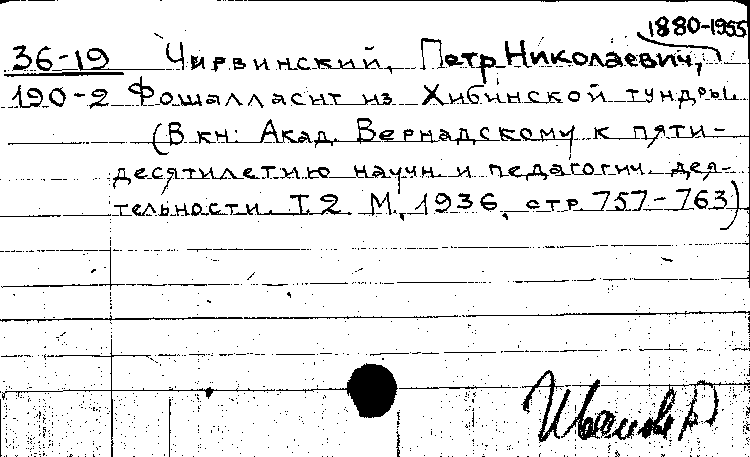 1880-1955
36-19 Чирвинский, Петр Николаевич,
190-2 Фошалласит из Хибинской тундры.
(В кн: Акад. Вернадскому к пяти-
десятилетию научн. и педагогич. дея-
тельности. Т.2. М., 1936, стр. 757-763)